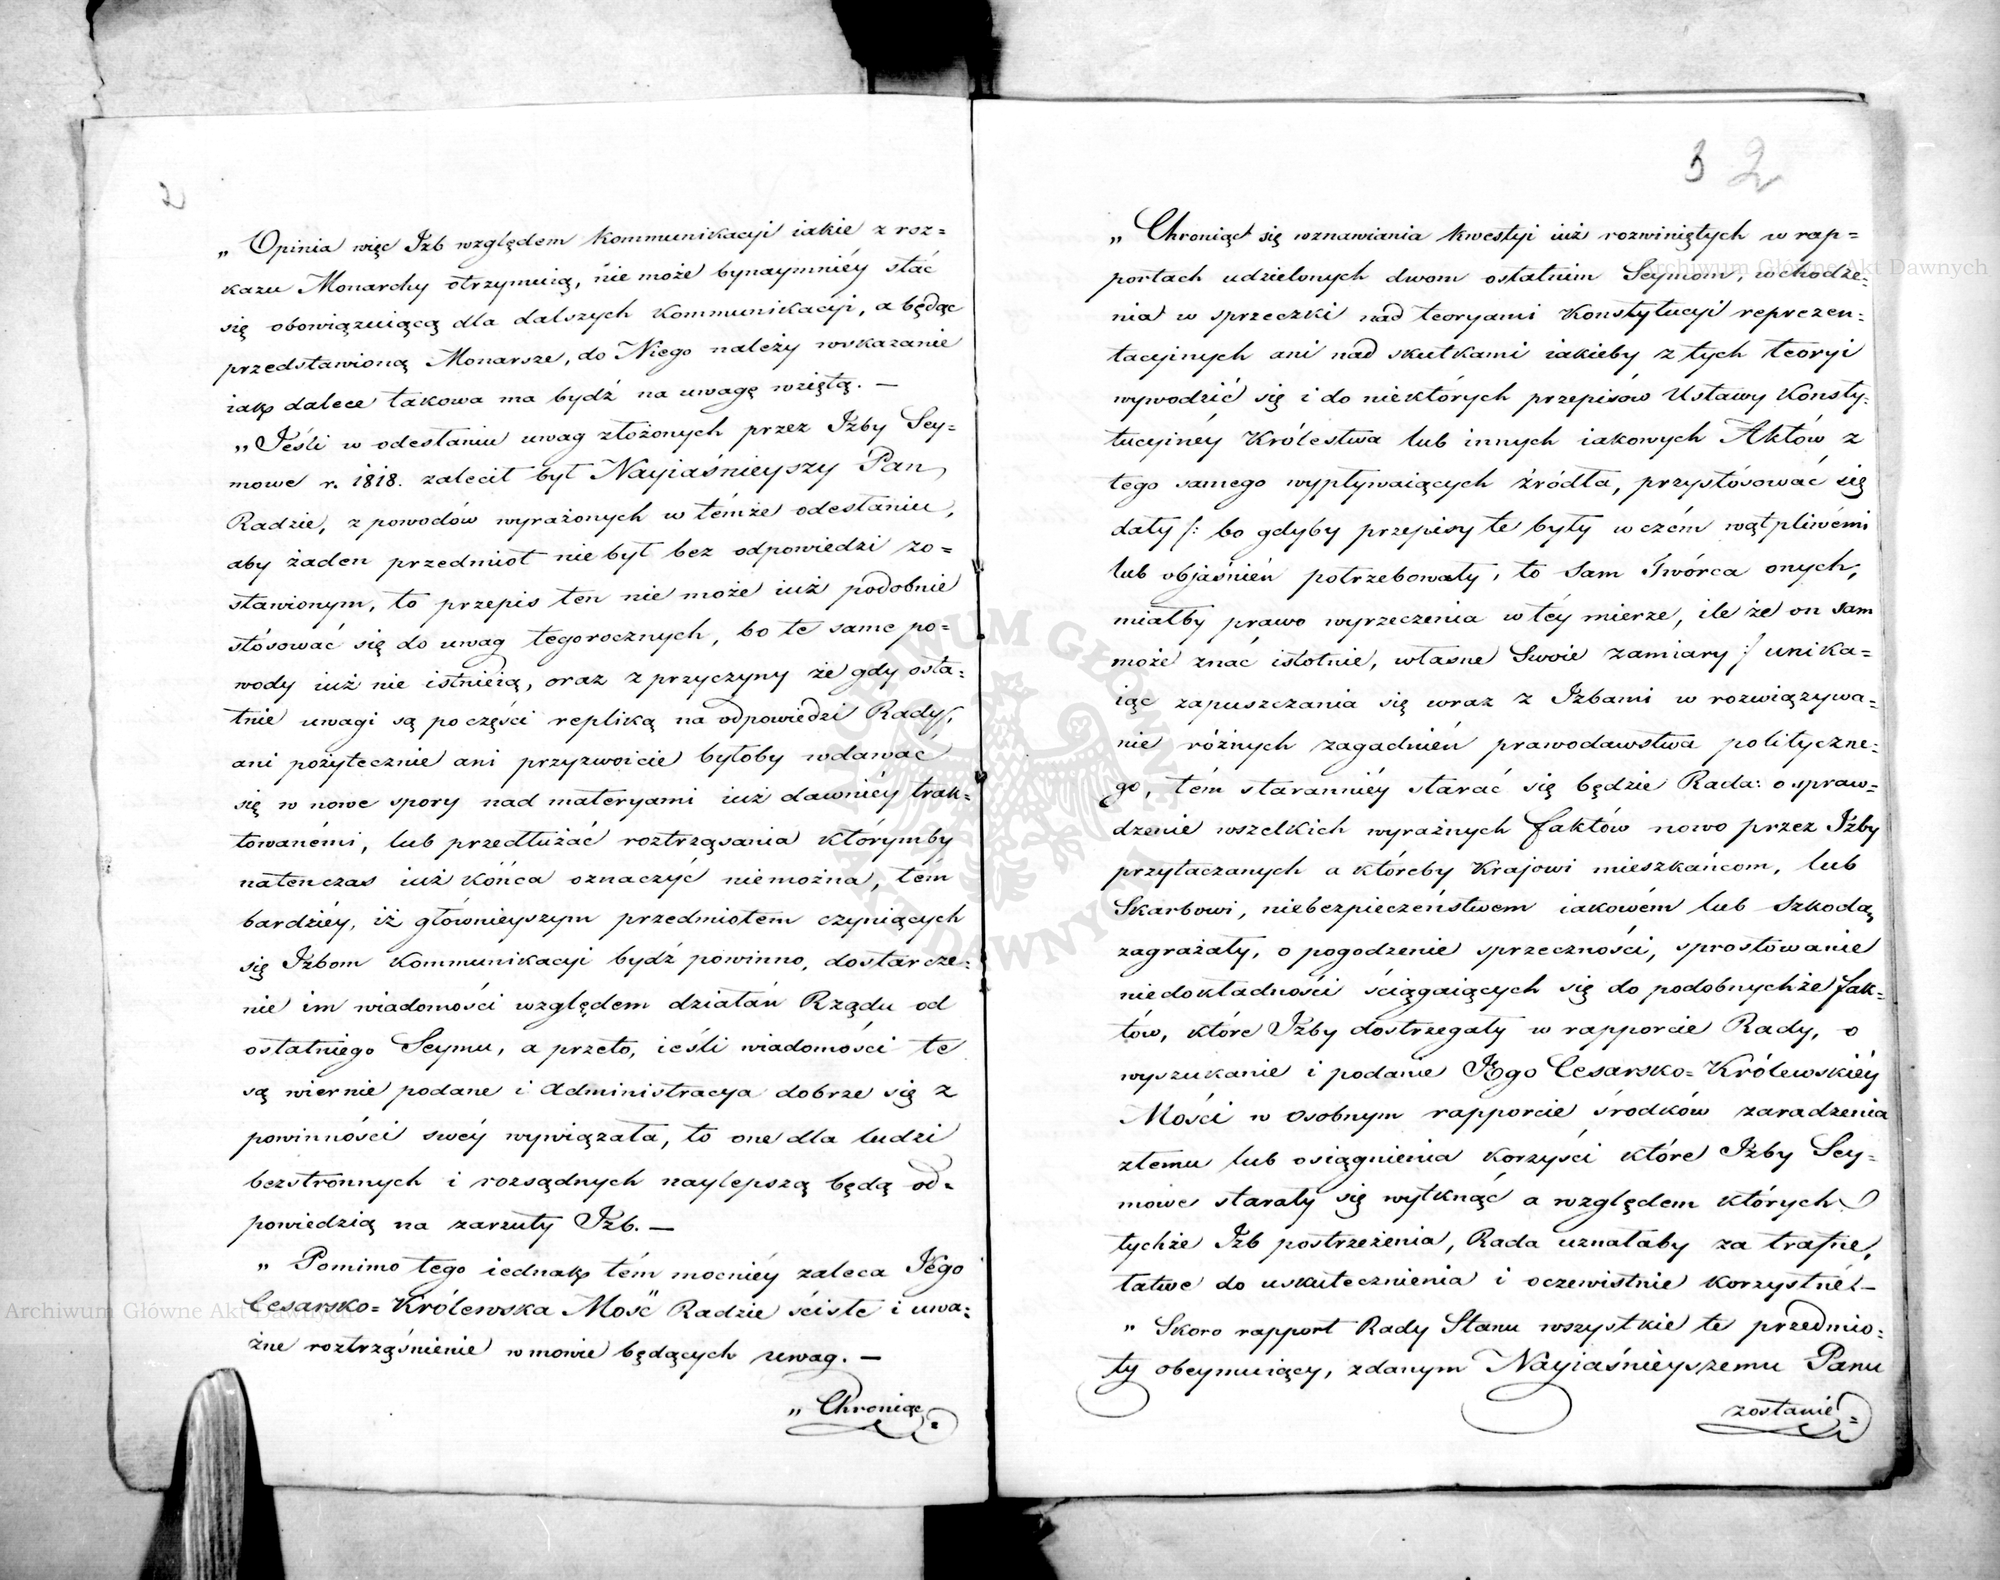 2
„Opinia więc Izb względem kommunikacyi iakie z roz=
kazu Monarchy otrzymuią, nie może bynaymniéy stać
się obowiązuiącą dla dalszych kommunikacyi, a będąc
przedstawioną Monarsze, do Niego należy wskazanie
iak dalece takowa ma bydź na uwagę wziętą. —
„Jeśli w odesłaniu uwag złożonych przez Izby Sey=
mowe r. 1818. zalecił był Nayiaśnieyszy Pan
Radzie, z powodów wyrażonych w témże odesłaniu,
aby żaden przedmiot nie był bez odpowiedzi zo=
stawionym, to przepis ten nie może iuż podobnie
stósować się do uwag tegorocznych, bo te same po=
wody iuż nie istnieią, oraz z przyczyny że gdy osta=
tnie uwagi są po części repliką na odpowiedzi Rady,
ani pożytecznie ani przyzwoicie byłoby wdawać
się w nowe spory nad materyami iuż dawniéy trak=
towanémi, lub przedłużać roztrząsania którymby
natenczas iuż końca oznaczyć niemożna, tém
bardziéy, iż główniejszym przedmiotem czyniących
się Izbom kommunikacyi bydź powinno, dostarcze=
nie im wiadomości względem działań Rządu od
ostatniego Seymu, a przeto, ieśli wiadomości te
są wiernie podane i Administracya dobrze się z
powinności swéy wywiązała, to one dla ludzi
bezstronnych i rozsądnych naylepszą będą od=
powiedzią na zarzuty Izb. —
„Pomimo tego iednak tém mocniéy zaleca Jego
Cesarsko=Królewska Mość Radzie ścisłe i uwa=
żne roztrząśnienie w mowie będących uwag. —
„Chroniąc=
3 2
„Chroniąc się wznawiania kwestyi iuż rozwiniętych w rap=
portach udzielonych dwom ostatnim Seymom, wchodze=
nia w sprzeczki nad teoryami Konstytucyi reprezen=
tacyinych ani nad skutkami iakieby z tych teoryi
wywodzić się i do niektórych przepisów Ustawy Konsty=
tucyinéy Królestwa lub innych iakowych Aktów z
tego samego wypływaiących źródła, przystósować się
dały /: bo gdyby przepisy te były w czém wątpliwémi
lub objaśnień potrzebowały, to Sam Twórca onych,
miałby prawo wyrzeczenia w téy mierze, ile że on sam
może znać istotnie, własne Swoie zamiary :/ unika=
iąc zapuszczania się wraz z Izbami w rozwiązywa=
nie różnych zagadnień prawodawstwa polityczne=
go, tém staranniéy starać się będzie Rada: o spraw=
dzenie wszelkich wyraźnych faktów nowo przez Izby
przytaczanych a któreby Krajowi mieszkańcom, lub
Skarbowi, niebezpieczeństwem iakowém lub szkodą
zagrażały, o pogodzenie sprzeczności, sprostowanie
niedokładności ściągaiących się do podobnychże fak=
tów, które Izby dostrzegały w rapporcie Rady, o
wyszukanie i podanie Jego Cesarsko=Królewskiéy
Mości w osobnym rapporcie środków zaradzenia
złemu lub osiągnienia korzyści które Izby Sey=
mowe starały się wytknąć a względem których
tychże Izb postrzeżenia, Rada uznałaby za trafne,
łatwe do uskutecznienia i oczewistnie korzystne. —
„Skoro rapport Rady Stanu wszystkie te przedmio=
ty obeymuiący, zdanym Nayiaśnieyszemu Panu
zostanie=
Archiwum Główne Akt Dawnych
Archiwum Główne Akt Dawnych
ARCHIWUM GŁÓWNE AKT DAWNYCH